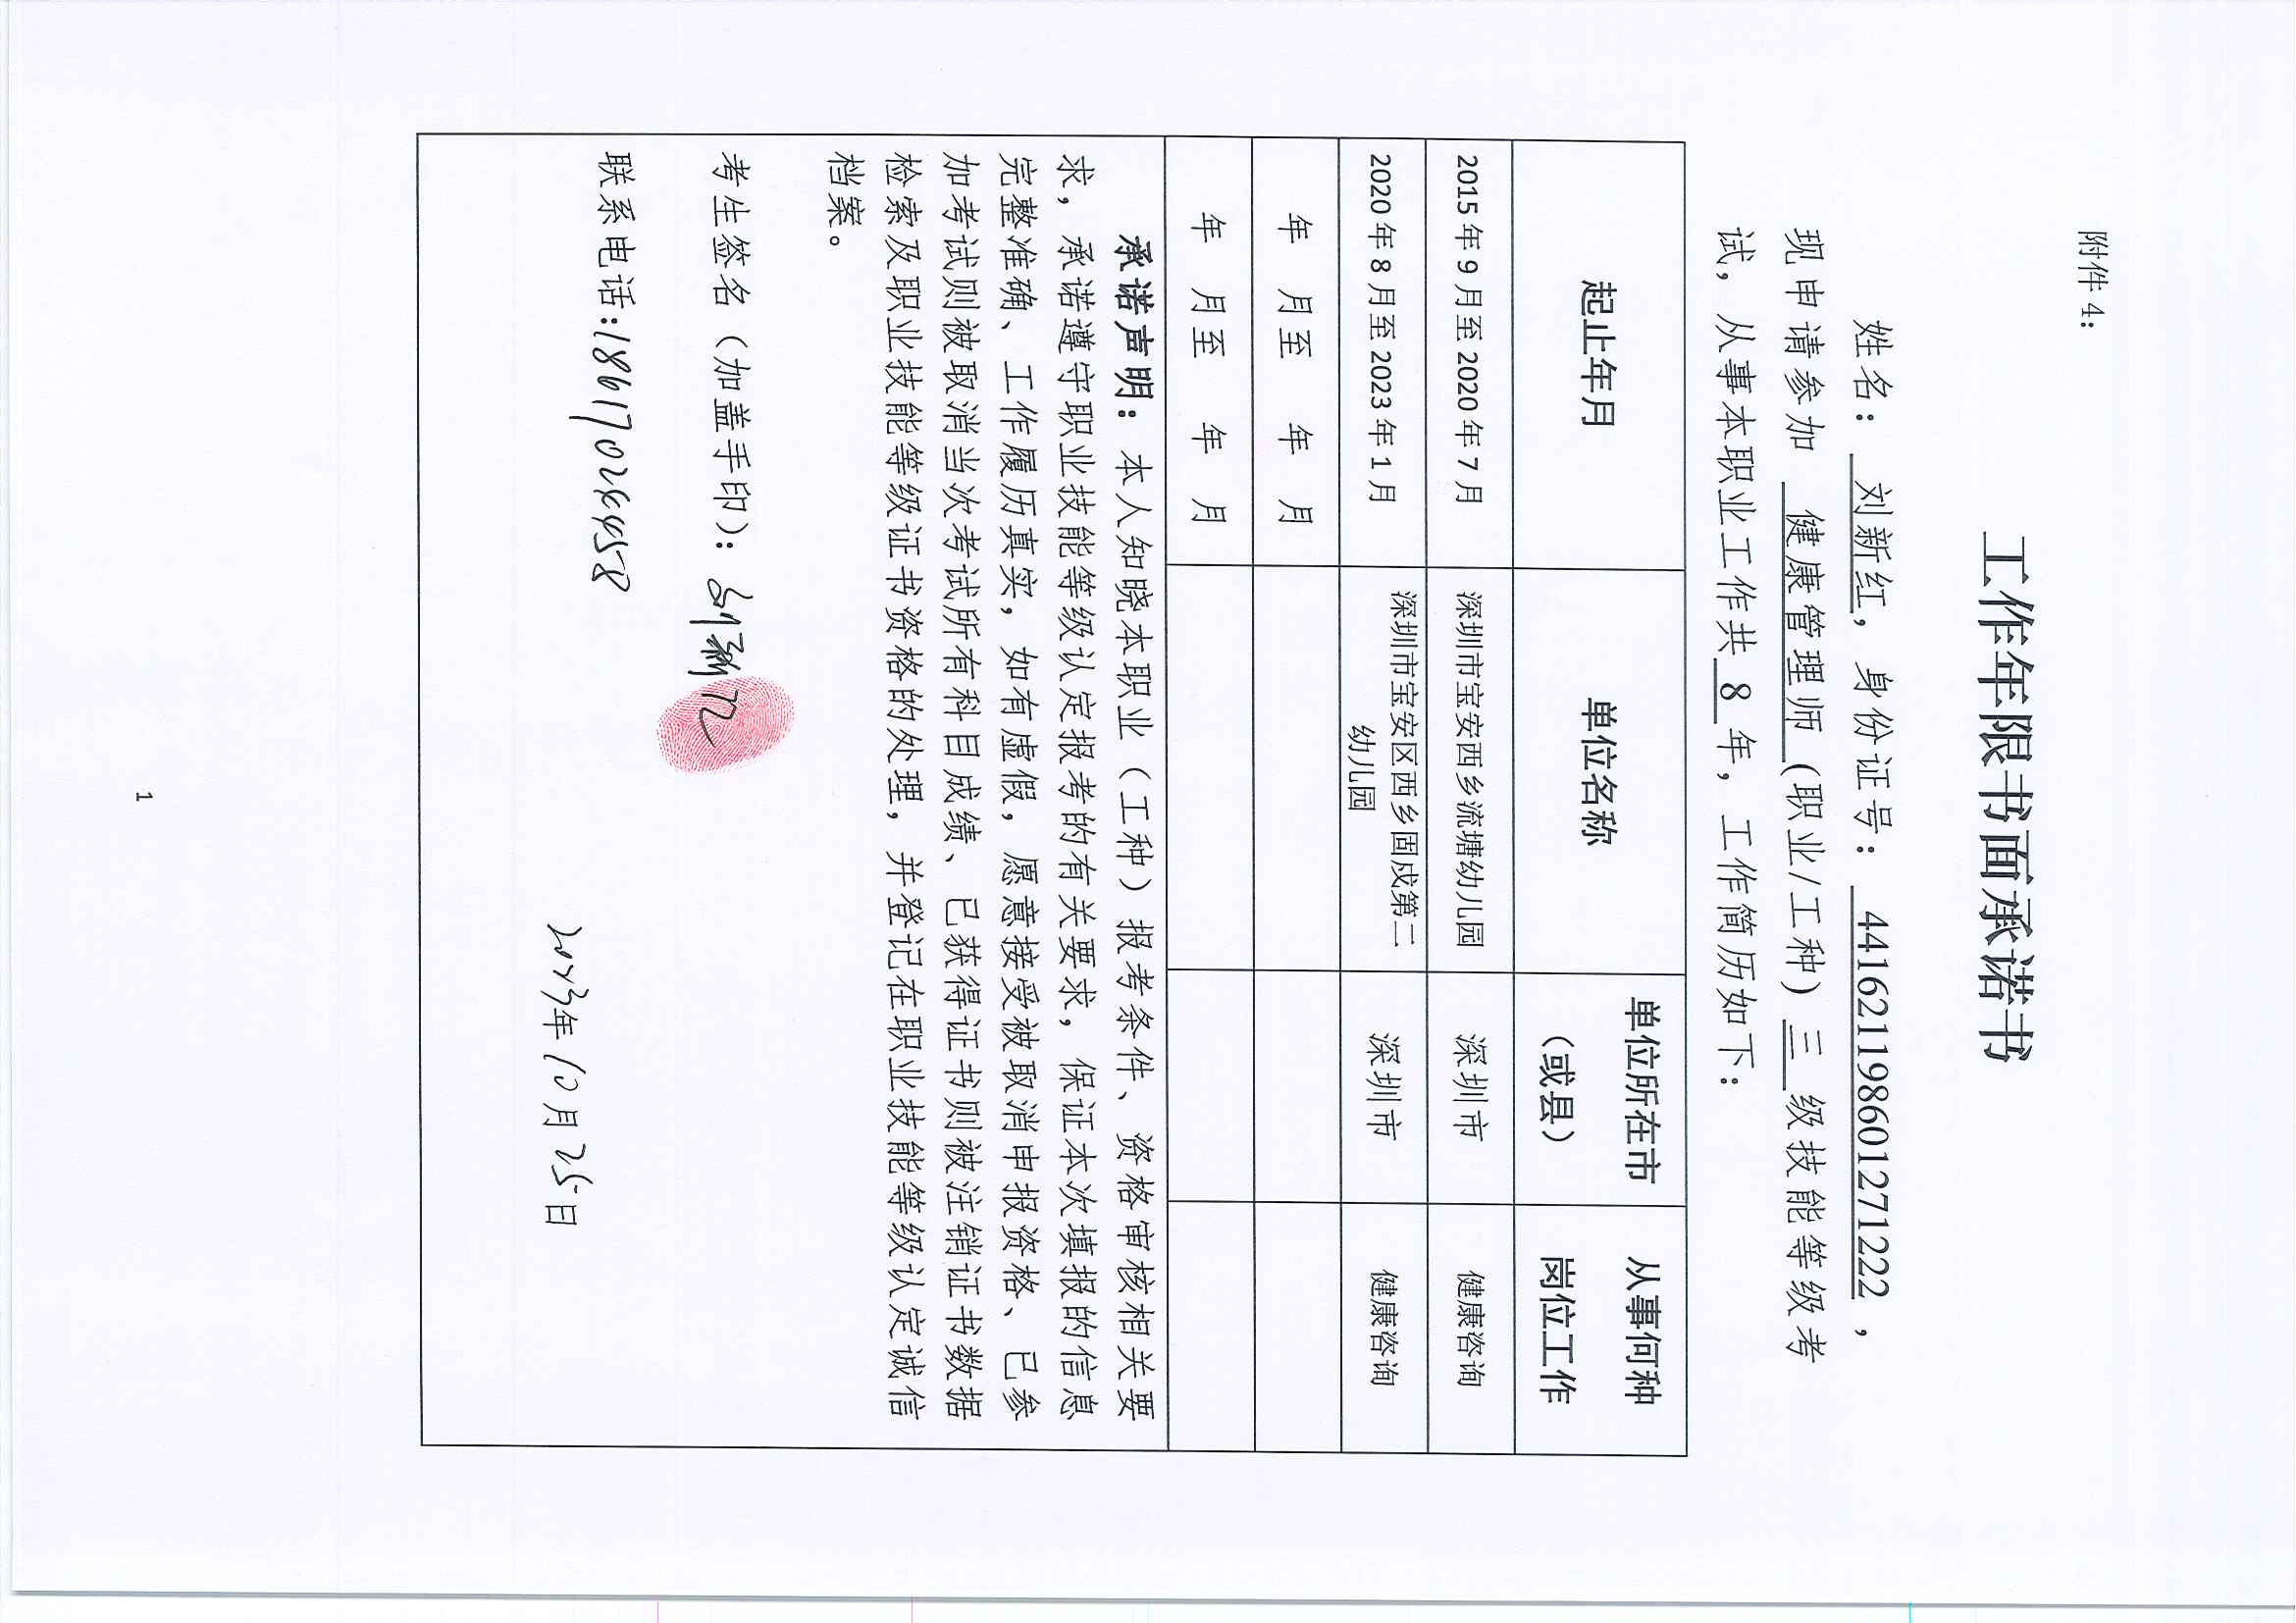 附件 4：
工作年限书面承诺书
姓名： 刘新红， 身份证号： 441621198601271222，
现申请参加 健康管理师 (职业/工种) 三 级技能等级考
试，从事本职业工作共 8 年，工作简历如下：
起止年月 单位名称 单位所在市（或县） 从事何种岗位工作
2015 年 9 月至 2020 年 7 月 深圳市宝安西乡流塘幼儿园 深圳市 健康咨询
2020 年 8 月至 2023 年 1 月 深圳市宝安区西乡固戍第二幼儿园 深圳市 健康咨询
年 月至 年 月
年 月至 年 月
承诺声明：本人知晓本职业（工种）报考条件、资格审核相关要
求，承诺遵守职业技能等级认定报考的有关要求，保证本次填报的信息
完整准确、工作履历真实，如有虚假，愿意接受被取消申报资格、已参
加考试则被取消当次考试所有科目成绩、已获得证书则被注销证书数据
检索及职业技能等级证书资格的处理，并登记在职业技能等级认定诚信
档案。
考生签名（加盖手印）：刘新红
联系电话:
2023年10月25日
1